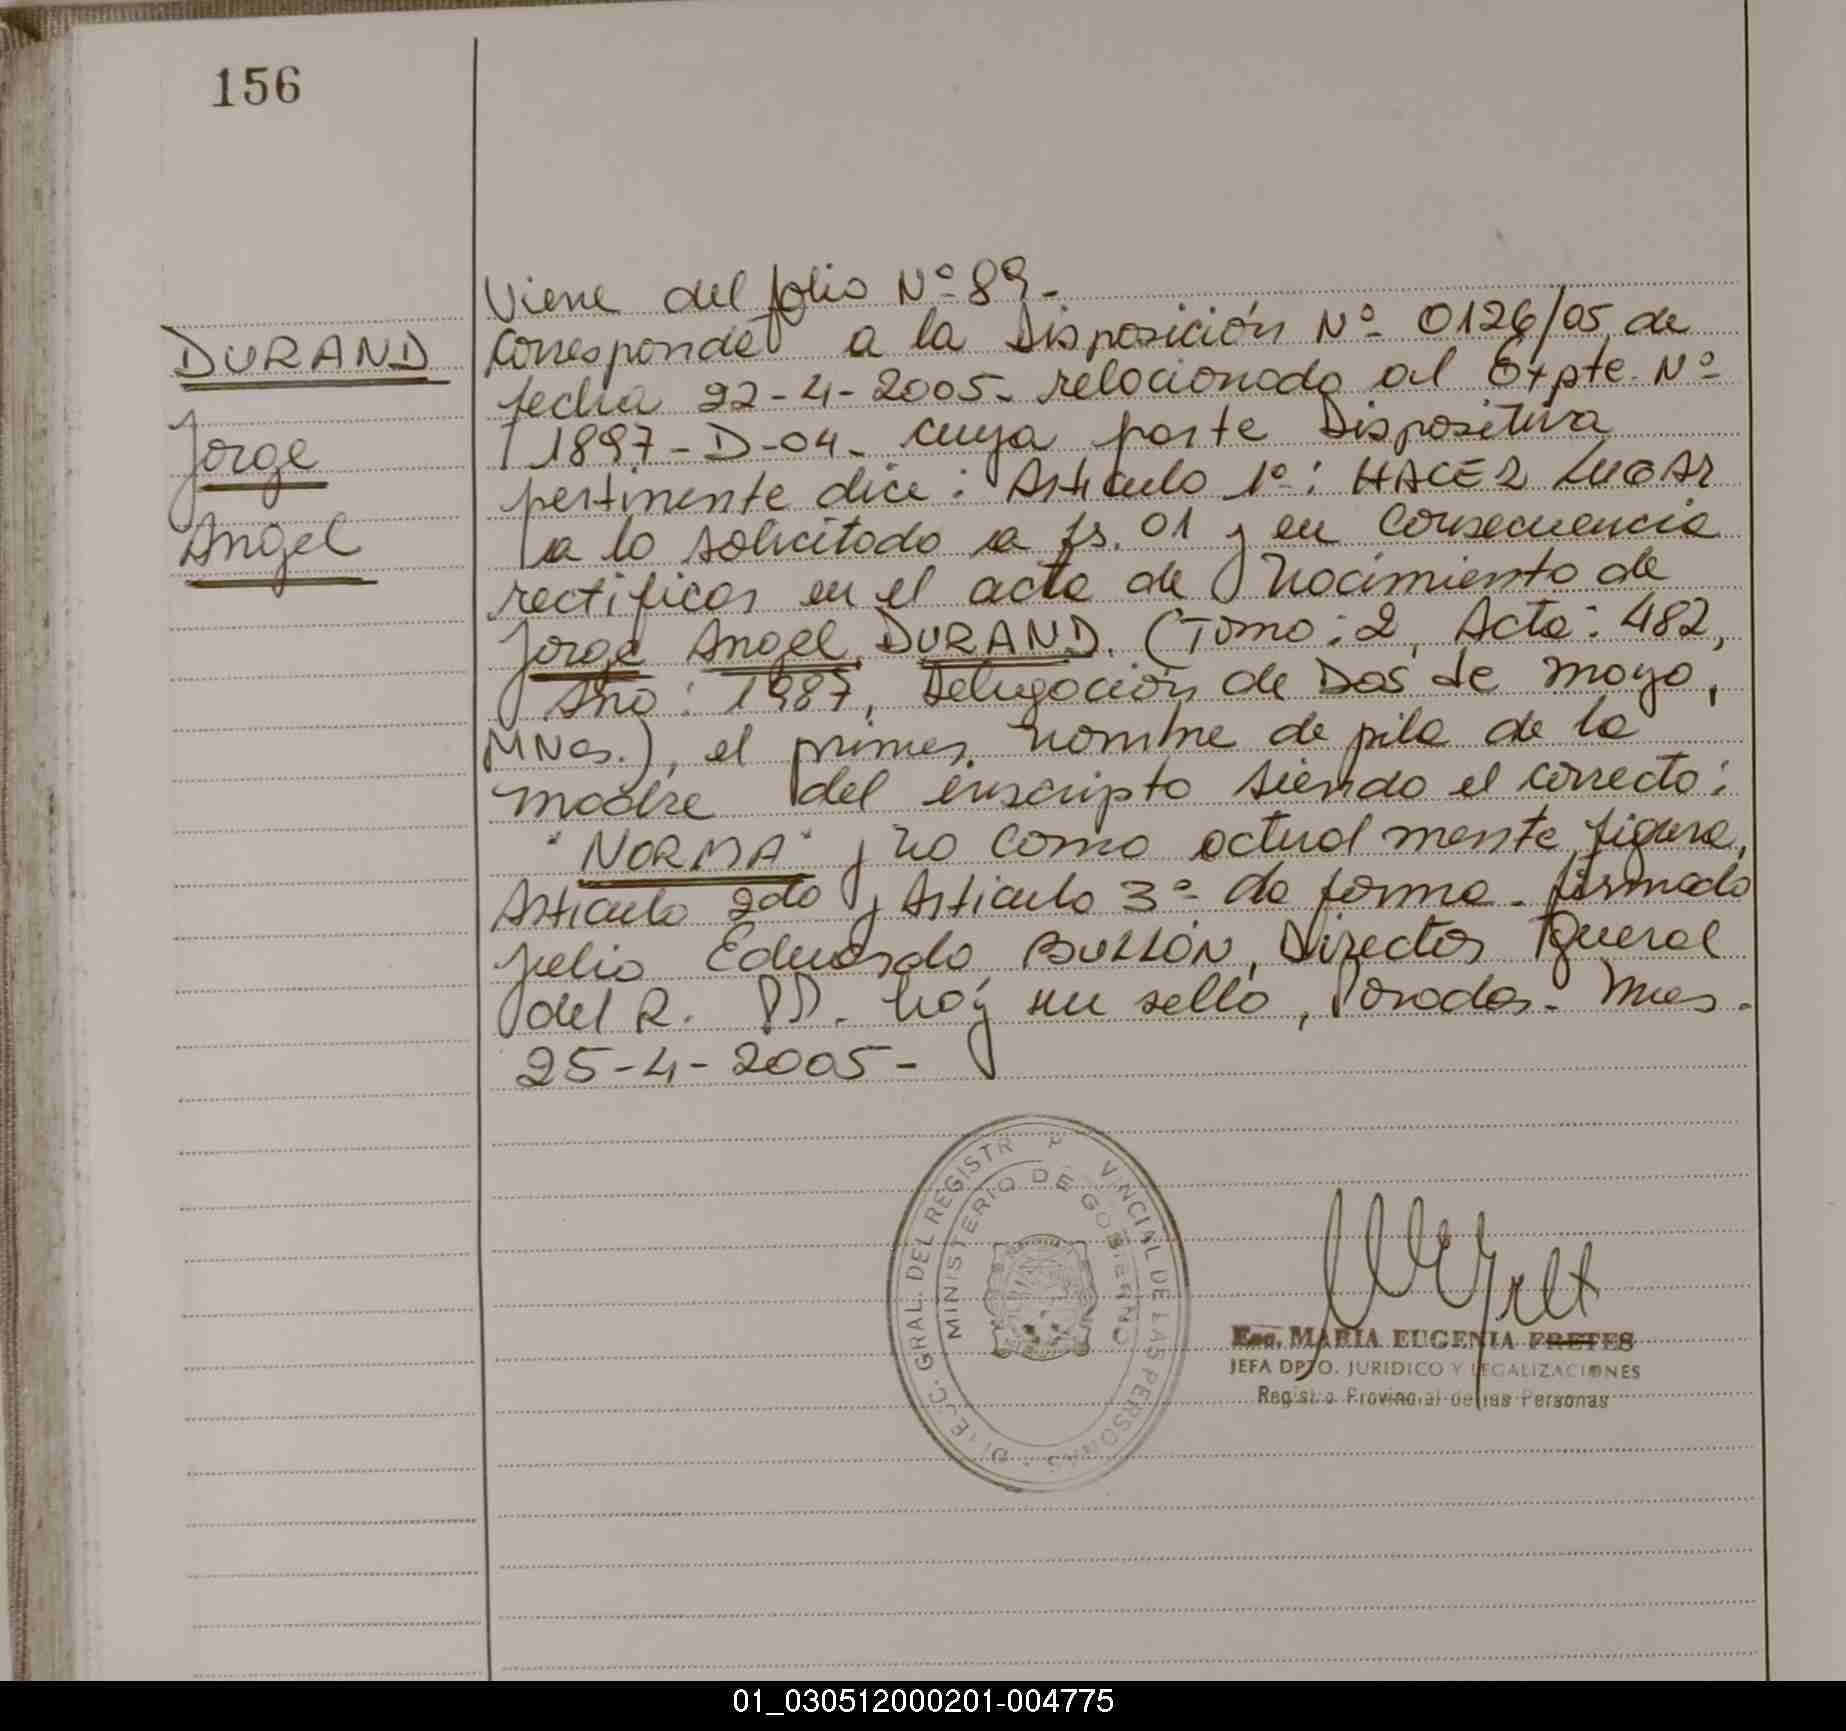 156
DURAND
Jorge
Angel
Viene del folio Nº 89-
Corresponde a la Disposición Nº 0126/05 de
fecha 22-4-2005- relacionado al Expte. Nº
1897-D-04- cuya parte Dispositiva
pertinente dice: Artículo 1º: HACER LUGAR
a lo solicitado a fs. 01 y en consecuencia
rectificar en el acta de Nacimiento de
Jorge Angel DURAND. (Tomo: 2, Acta: 482,
Año: 1987, Delegación de Dos de Mayo,
MNes.), el primer nombre de pila de la
madre del inscripto siendo el correcto:
"NORMA" y no como actualmente figura,
Artículo 2do y Artículo 3º de forma- firmado
Julio Eduardo BULLÓN, Director General
del R. PP. hay un sello, Posadas- Mnes.
25-4-2005-
DIREC. GRAL. DEL REGISTR P VINCIAL DE LAS PERSONAS
MINISTERIO DE GOBIERNO
Esc. MARIA EUGENIA FRETES
JEFA DPTO. JURIDICO Y LEGALIZACIONES
Registro Provincial de las Personas
01_030512000201-004775